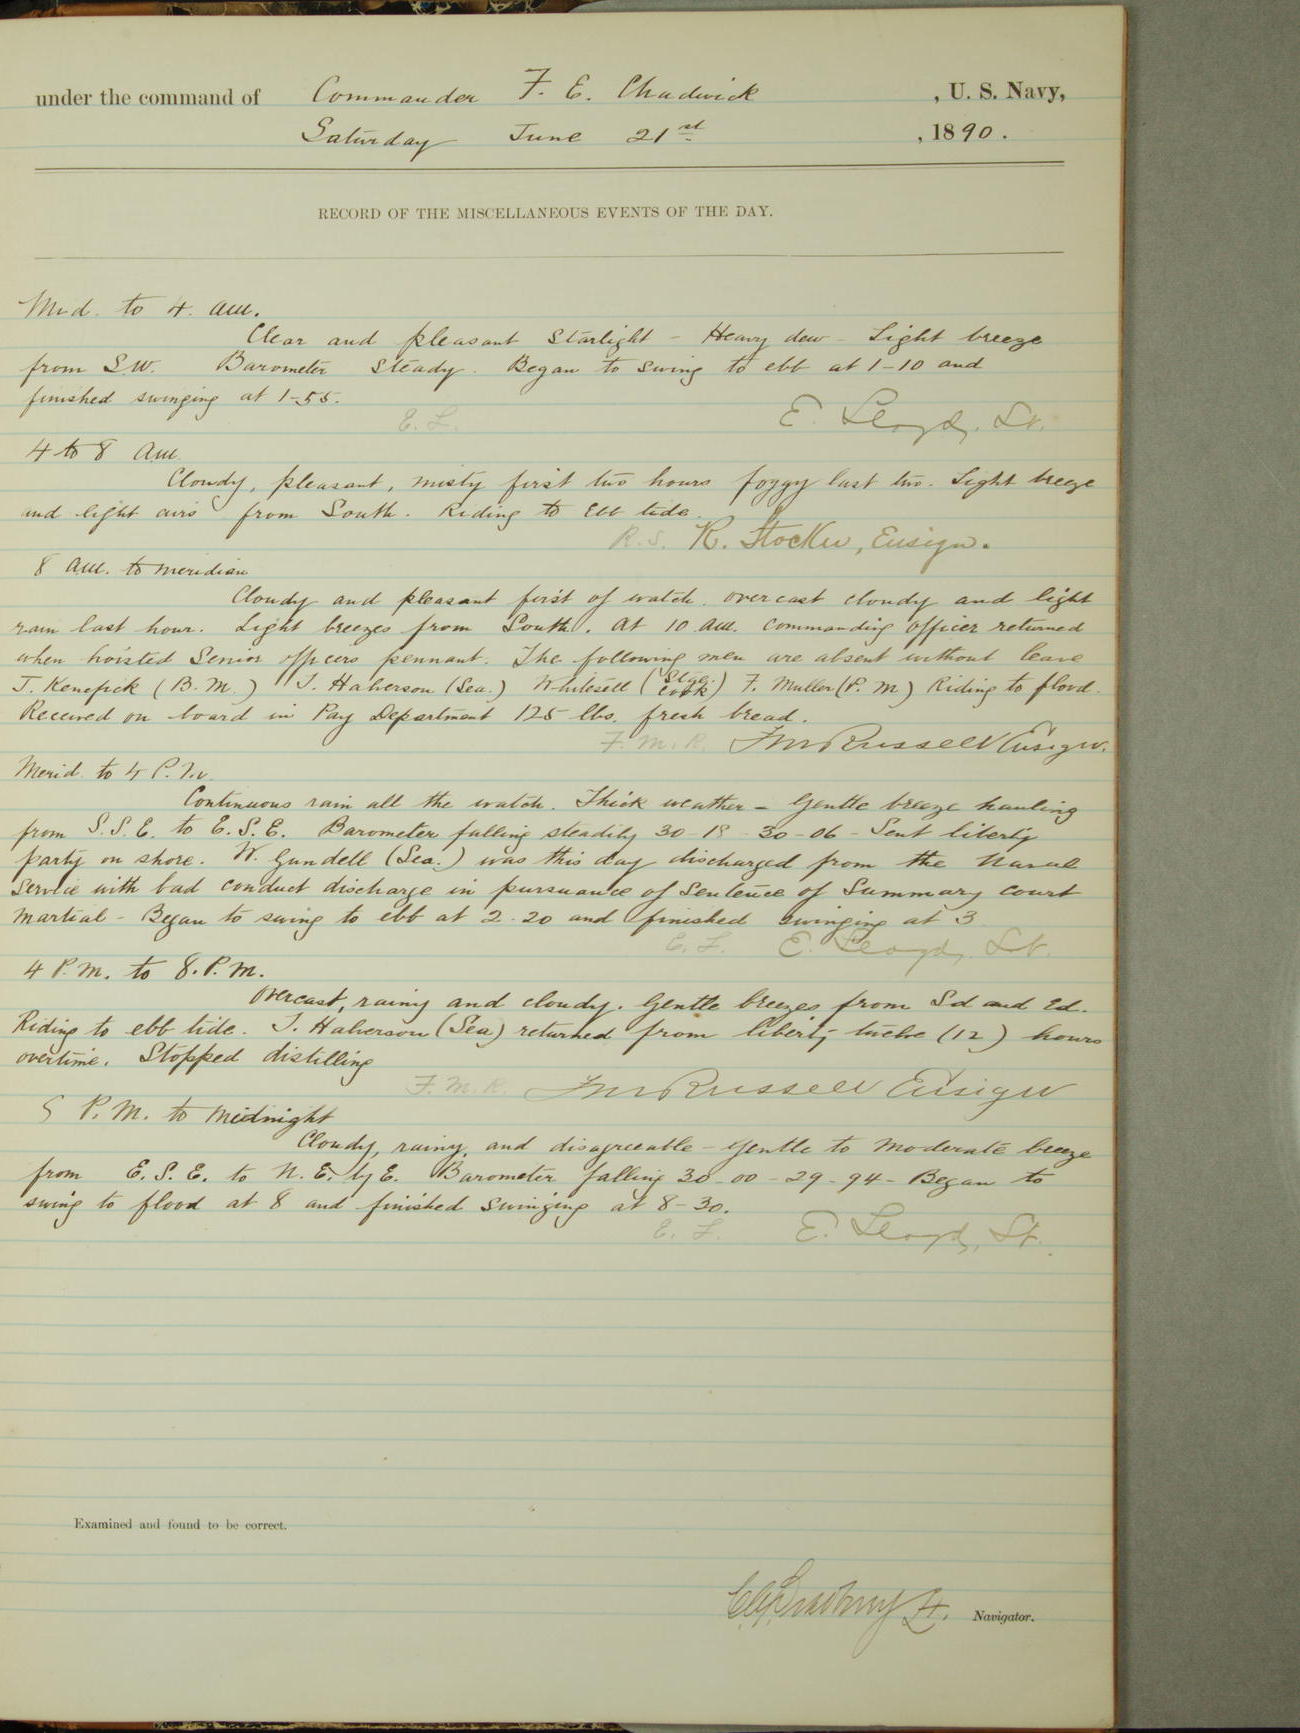 under the command of Commander F. E. Chadwick , U. S. Navy,
Saturday June 21st , 1890.
RECORD OF THE MISCELLANEOUS EVENTS OF THE DAY.
Mid. to 4. AM.
Clear and pleasant Starlight - Heavy dew - Light breeze
from S.W. Barometer Steady. Began to swing to ebb at 1-10 and
finished swinging at 1-55.
E. L. E. Lloyd, Lt.
4 to 8 AM
Cloudy, pleasant, misty first two hours foggy last two. Light breeze
and light airs from South. Riding to Ebb tide.
R.S. R. Stocker, Ensign.
8 AM. to meridian
Cloudy and pleasant first of watch. overcast cloudy and light
rain last hour. Light breezes from South. At 10 AM. commanding officer returned
when hoisted Senior officers pennant. The following men are absent without leave
J. Kenefick (B.M.) T. Halverson (Sea.) Whitesell (Stge. Cook) F. Muller (P.M.) Riding to flood.
Received on board in Pay Department 125 lbs. fresh bread.
F. M. R. FM Russell Ensign.
Merid. to 4 P.M.
Continuous rain all the watch. Thick weather - Gentle breeze hauling
from S.S.E. to E.S.E. Barometer falling steadily 30-18-30-06 - Sent liberty
party on shore. W. Gundell (Sea.) was this day discharged from the Naval
Service with bad conduct discharge in pursuance of Sentence of Summary Court
Martial - Began to swing to ebb at 2-20 and finished swinging at 3
E. L. E. Lloyd, Lt.
4 P.M. to 8. P.M.
Overcast, rainy and cloudy. Gentle breezes from Sd and Ed.
Riding to ebb tide. T. Halverson (Sea) returned from liberty twelve (12) hours
overtime. Stopped distilling
F. M. R. FM Russell Ensign
8 P.M. to Midnight
Cloudy, rainy, and disagreeable - Gentle to moderate breeze
from E.S.E. to N.E. by E. Barometer falling 30-00-29-94 - Began to
swing to flood at 8 and finished swinging at 8-30.
E. L. E. Lloyd, Lt.
Examined and found to be correct.
Navigator.